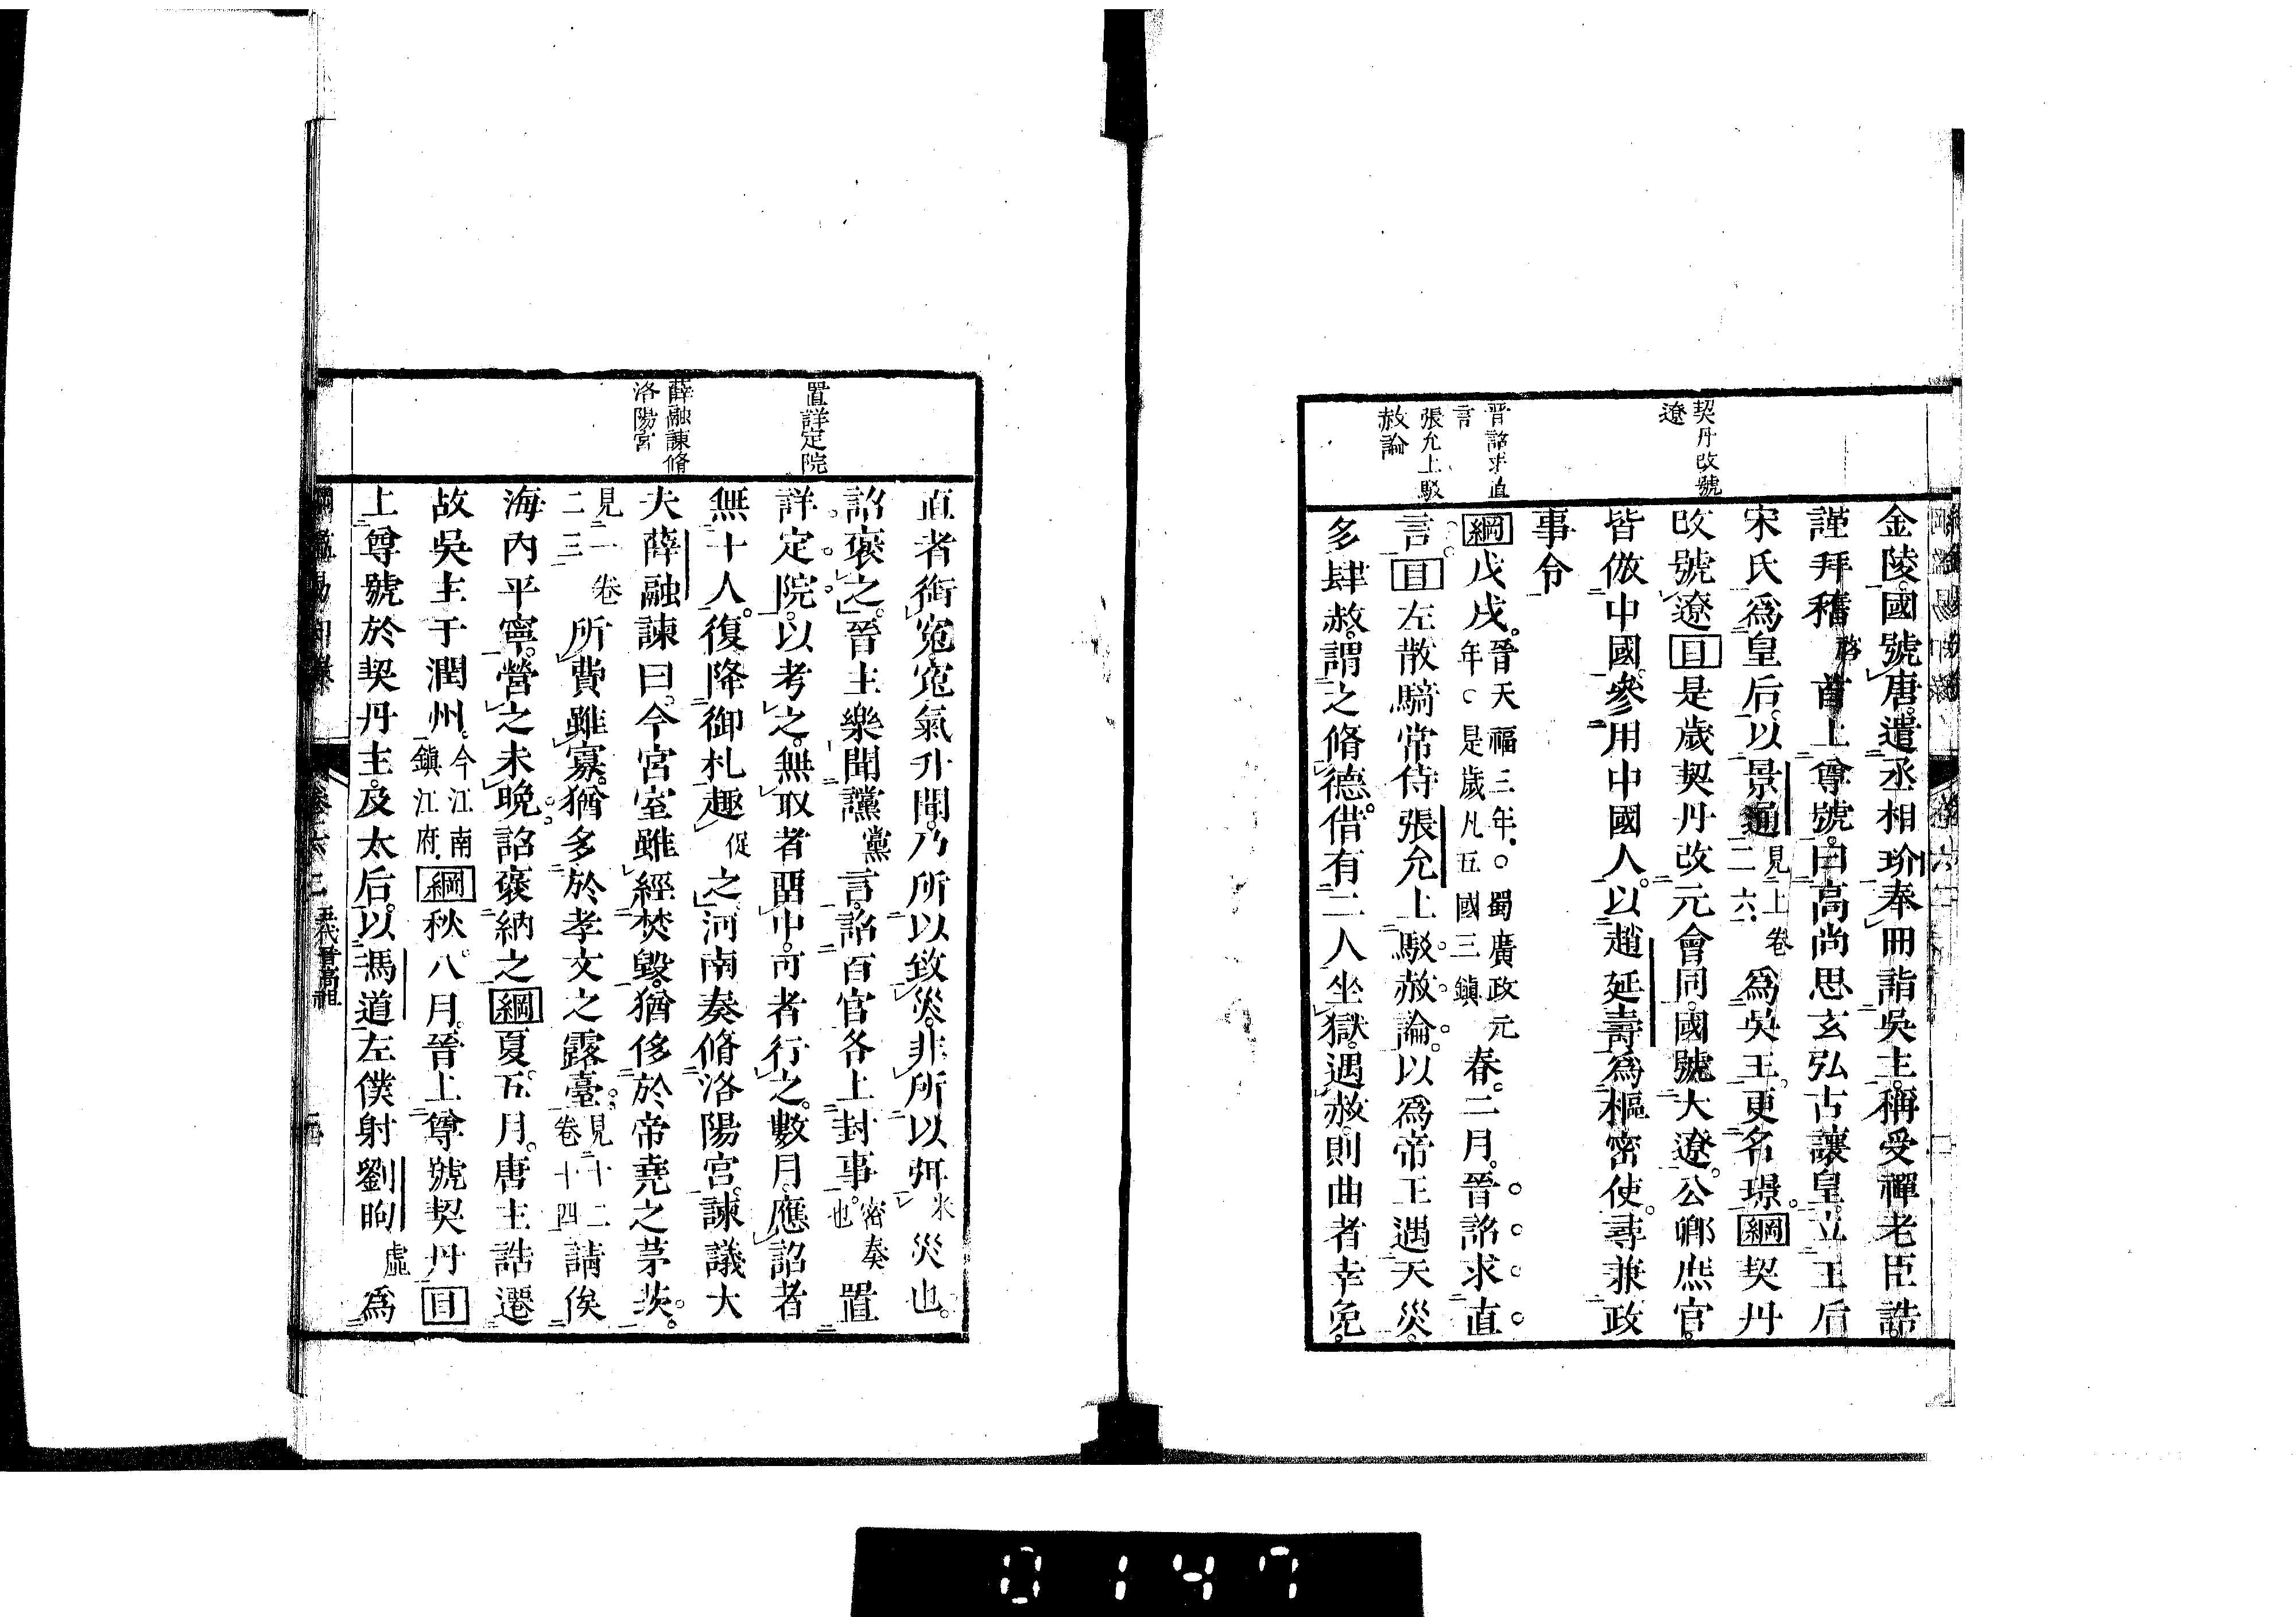 契丹改號
遼
晉詔求直
言
張允上駁
赦論
金陵。國號唐。遣丞相玠奉冊詣吳主。稱受禪老臣誥。
謹拜稽首上尊號。曰高尚思玄弘古讓皇。立王后
宋氏爲皇后。以景通見上卷二六爲吳王。更名璟。綱契丹
改號遼目是歲契丹改元會同。國號大遼。公卿庶官。
皆倣中國。參用中國人。以趙延壽爲樞密使。尋兼政
事令
綱戊戌。晉天福三年。○蜀廣政元年○是歲凡五國三鎮春。二月。晉詔求直
言。目左散騎常侍張允上駁赦論。以爲帝王遇天災。
多肆赦。謂之脩德。借有二人坐獄。遇赦。則曲者幸免。
置詳定院
薛融諫脩
洛陽宮
直者銜冤。冤氣升聞。乃所以致災。非所以弭米災也。
詔褒之。晉主樂聞讜黨言。詔百官各上封事。密奏也。置
詳定院。以考之。無取者留中。可者行之。數月。應詔者
無十人。復降御札趣促之。河南奏脩洛陽宮。諫議大
夫薛融諫曰。今宮室雖經焚毀。猶侈於帝堯之茅茨。
見一卷二三所費雖寡。猶多於孝文之露臺。見十二卷十四請俟
海內平寧。營之未晚。詔褒納之綱夏。五月。唐主誥遷
故吳主于潤州。今江南鎮江府。綱秋。八月。晉上尊號契丹目
上尊號於契丹主。及太后。以馮道左僕射劉昫虛爲
卷六三
五代晉高祖
0147